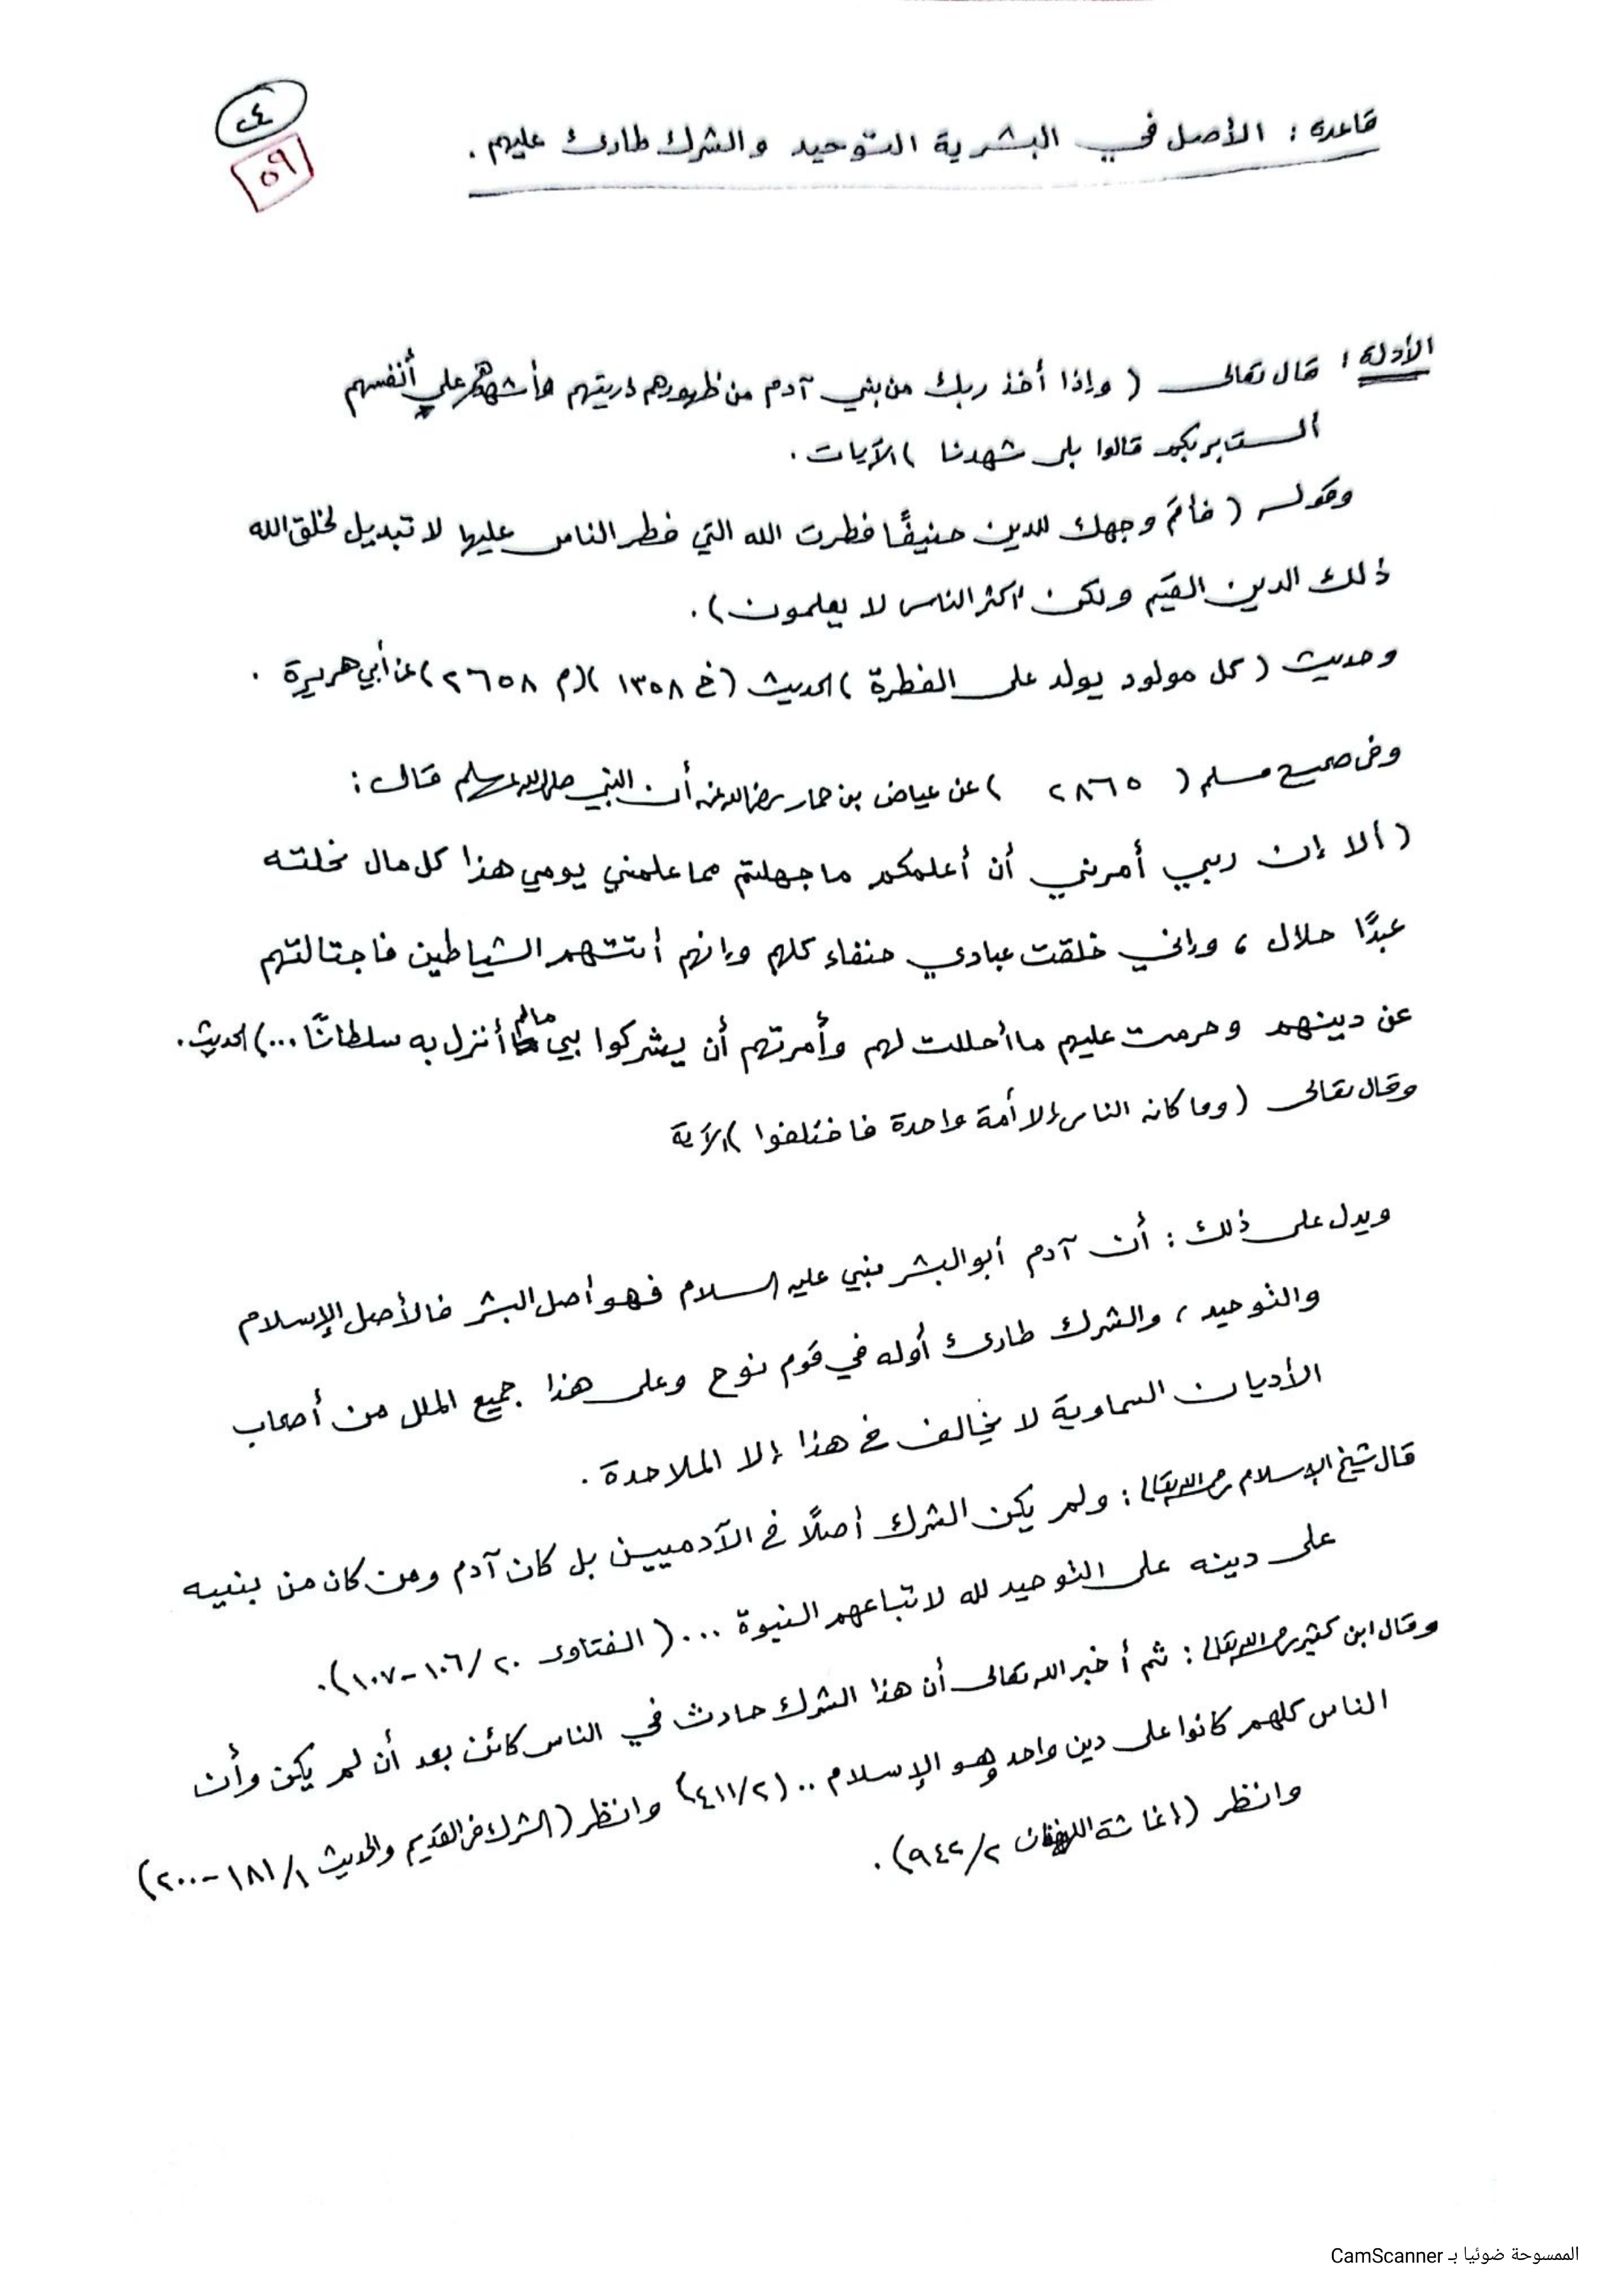 ٤
٥٩
قاعدة : الأصل في البشرية التوحيد والشرك طارئ عليهم .
الأدلة : قال تعالى ( وإذا أخذ ربك من بني آدم من ظهورهم ذريتهم وأشهدهم على أنفسهم
ألست بربكم قالوا بلى شهدنا ) الآيات .
وقوله ( فأقم وجهك للدين حنيفًا فطرت الله التي فطر الناس عليها لا تبديل لخلق الله
ذلك الدين القيم ولكن أكثر الناس لا يعلمون ) .
وحديث ( كل مولود يولد على الفطرة ) الحديث ( خ ١٣٥٨ )( م ٢٦٥٨ ) عن أبي هريرة .
وفي صحيح مسلم ( ٢٨٦٥ ) عن عياض بن حمار رضي الله عنه أن النبي صلى الله عليه وسلم قال :
( ألا إن ربي أمرني أن أعلمكم ما جهلتم مما علمني يومي هذا كل مال نحلته
عبدًا حلال ، وإني خلقت عبادي حنفاء كلهم وإنهم أتتهم الشياطين فاجتالتهم
عن دينهم وحرمت عليهم ما أحللت لهم وأمرتهم أن يشركوا بي مالم أنزل به سلطانًا ... ) الحديث .
وقال تعالى ( وما كان الناس إلا أمة واحدة فاختلفوا ) الآية
ويدل على ذلك : أن آدم أبو البشر نبي عليه السلام فهو أصل البشر فالأصل الإسلام
والتوحيد ، والشرك طارئ أوله في قوم نوح وعلى هذا جميع الملل من أصحاب
الأديان السماوية لا يخالف في هذا إلا الملاحدة .
قال شيخ الإسلام رحمه الله تعالى : ولم يكن الشرك أصلًا في الآدميين بل كان آدم ومن كان من بنيه
على دينه على التوحيد لله لاتباعهم النبوة ... ( الفتاوى ٢٠/١٠٦-١٠٧ ) .
وقال ابن كثير رحمه الله تعالى : ثم أخبر الله تعالى أن هذا الشرك حادث في الناس كائن بعد أن لم يكن وأن
الناس كلهم كانوا على دين واحد وهو الإسلام .. ( ٢/٤١١ ) وانظر ( الشرك في القديم والحديث ١/١٨١-٢٠٠ )
وانظر ( إغاثة اللهفان ٢/٩٤٢ ) .
الممسوحة ضوئيا بـ CamScanner